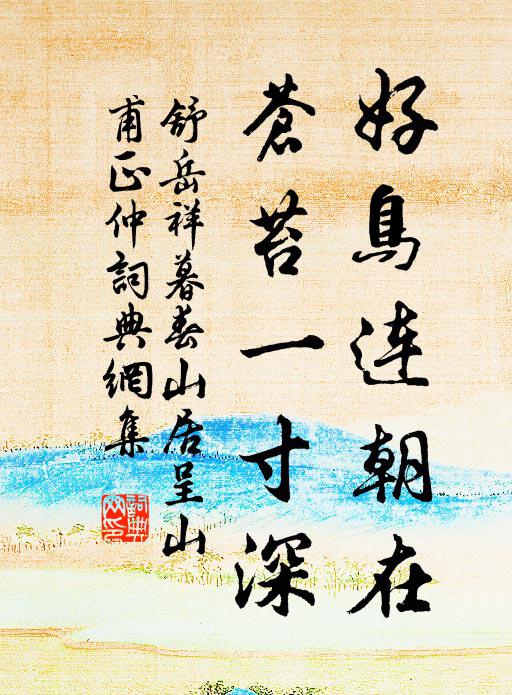 好鳥連朝在
蒼苔一寸深
舒岳祥暮春山居呈山
甫正仲詞典網集